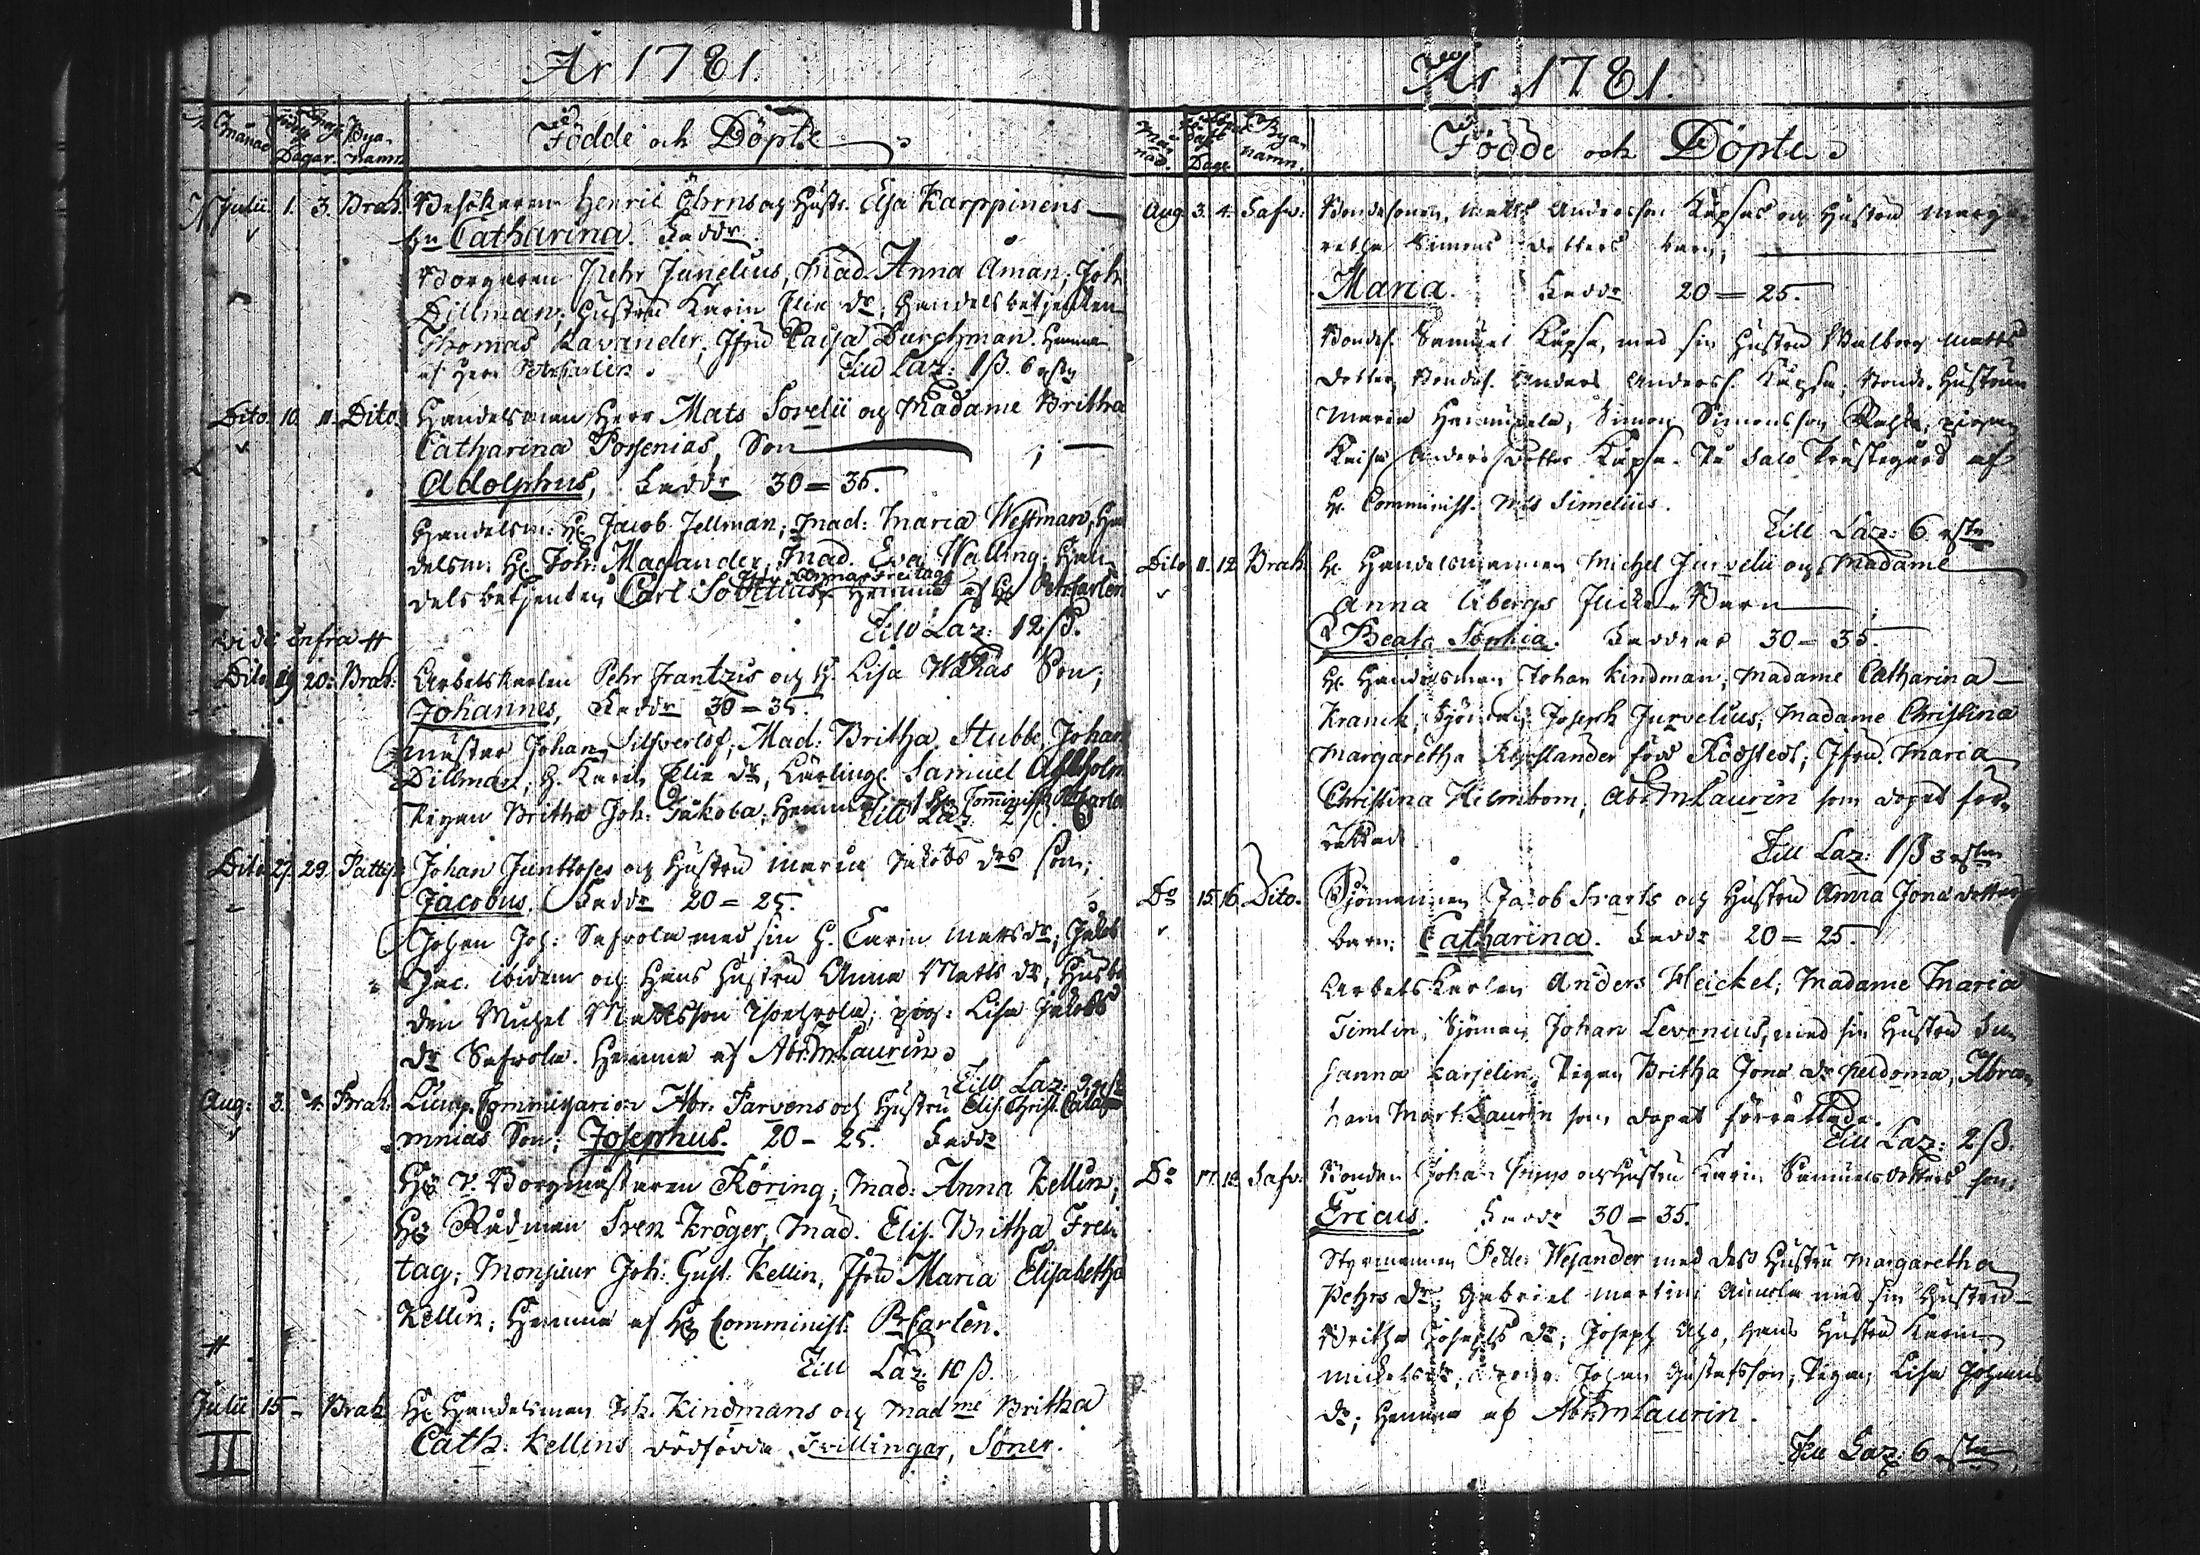 År 1781.
Månad Födelse Döpelse Dagar. Bya namn
Födde och Döpte
Julii 1. 3. Brah. Besökaren Henric Öhrns och Hustr. Elsa Karppinens
Catharina. Faddr
Borgaren Pehr Junelius, Mad. Anna Åman; Joh
Dillman; Hustru Karin Elie dr; Handelsbetjenten
Thomas Kavander, Jfru Caisa Durchman. Hemma
af Herr Petr Carlén. Till Laz: 1 ß. 6
Dito. 10. 11. Dito. Handelsman Herr Mats Sovelii och Madame Britha
Catharina Porsenias, Son
Adolphus, Faddr 30 = 35.
Handelsm: Hr Jacob Zellman; Mad: Maria Westman, Han
delsm. Hr Joh. Magander, Mad. Eva Walling; Han
delsbetjenten Carl Sovelius, Hemma af Hr Petr Carlén
Till Laz: 12 ß.
Vide infra #
Dito 19 20: Brah: Arbetskarlen Pehr Frantzus och H. Lisa Wahas Son;
Johannes, Faddr 30 = 35.
mästar Johan Silfverlöf; Mad: Britha Stubbe, Johan
Dillman, H. Karin Elie dr, Lärling: Samuel
Pigan Britha Joh. Jakola; Hemma af Hr Comminist. P. Carlén
Till Laz: 2 ß.
Dito 27. 29. Pattij: Johan Junttoses och Hustru Maria Jakobs drs son;
Jacobus, Faddr 20 = 25.
Johan Joh: Safvola med sin H. Carin Matts dr; Jakob
Jac. ibidem och Hans Hustru Anna Matts dr,
Michel Mattsson pig: Lisa Jakobs
dr Safvola. Hemma af Abr. M. Laurin.
Till Laz: 9
Aug: 3. 4. Brah: Commissarien Abr. Farvens och Hustru Elis. Christ. Cala
mnias Son; Josephus. 20 - 25. Faddr
Hr V. Borgmästaren Röring; Mad: Anna Kellin;
Hr Rådman Sven Kröger, Mad. Elis. Britha Frei
tag; Monsieur Joh: Gust. Kellin, Jfru Maria Elisabetha
Kellin; Hemma af Hr Comminist: Pr Carlén.
Till Laz: 10 ß.
#
Julii 15 - Brah. Hr Handelsman Joh. Kindmans och Madme Britha
II Cath: Kellens dödfödda Tvillingar, Söner.
År 1781.
Månad. Dagar Bya namn.
Födde och Döpte
Aug. 3. 4. Safv: Bondesonen, Matts Andersson Kupsas och Hustru Marga
retha Simons dotters barn;
Maria. Faddr 20 = 25.
Bondes. Samuel Kupsa, med sin Hustru Walborg Matts
dotter, Bondes. Anders Anderss. Kupsa; Bonde. Hustrun
Maria Simon Simonsson pigan
Kaisa Anders Dotter Kupsa. På Salo Prästegård af
Hr Comminist. Nils Simelius.
Till Laz: 6
Dito 11. 12 Brah. Hr Handelsmannen Michel Jurvelii och Madame
Anna Åbergs Flicke-Barn
Beata Sophia. Faddrar 30 - 35.
Hr Handelsman Johan Kindman; Madame Catharina
Kranck, Sjöman Joseph Jurvelius, Madame Christina
Margaretha född Rödstedt; Jfru. Maria
Christina Holmbom; Abr. M Laurin som dopet för-
rättade
Till Laz: 1 ß 3
Do 15. 16. Dito. Sjömannen Jacob och Hustru Anna Jons dotters
barn; Catharina. Faddr 20 = 25.
Arbetskarlen Anders Heickel; Madame Maria
Timlin, Sjöman Johan Levonius; med sin Hustru Su
sanna Karjelin, Pigan Britha Jons dr Abra
ham Mart: Laurin som dopet förrättade.
Till Laz: 2 ß.
Do 17. 18. Safv: Bonden Johan och Hustru Karin Samuels Dotters son;
Ericus. Faddr 30 = 35.
Styrmannen Petter Wesander med dess Hustru Margaretha
Pehrs dr; Gabriel Martini med sin Hustru
Britha Josephs dr; Joseph hans Hustru Karin
Mickels dr; Johan Gustafsson, Pigan Lisa Johans
dr; Hemma af Abr. M Laurin.
Till Laz: 6